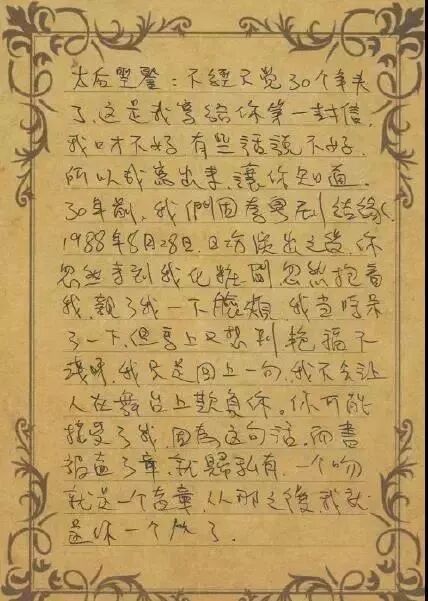 太后聖鑒：不經不覺30个年头
了，这是我寫給你第一封信，
我口才不好 有些話說不好，
所以我寫出来，讓你知道，
30年前，我們因粵剧結緣，
1988年8月28日，日場演出之後，你
忽然来到我化粧間忽然抱着
我，親了我一下臉頰，我当時呆
了一下，但馬上又想到艳福不
淺呀，我只是回上一句，我不会让
人在舞台上欺負你。你可能
接受了我，因為这句話，而書
說直了章，就歸私有，一个吻
就是一个蓋章，从那之後，我就
是你一个人了。